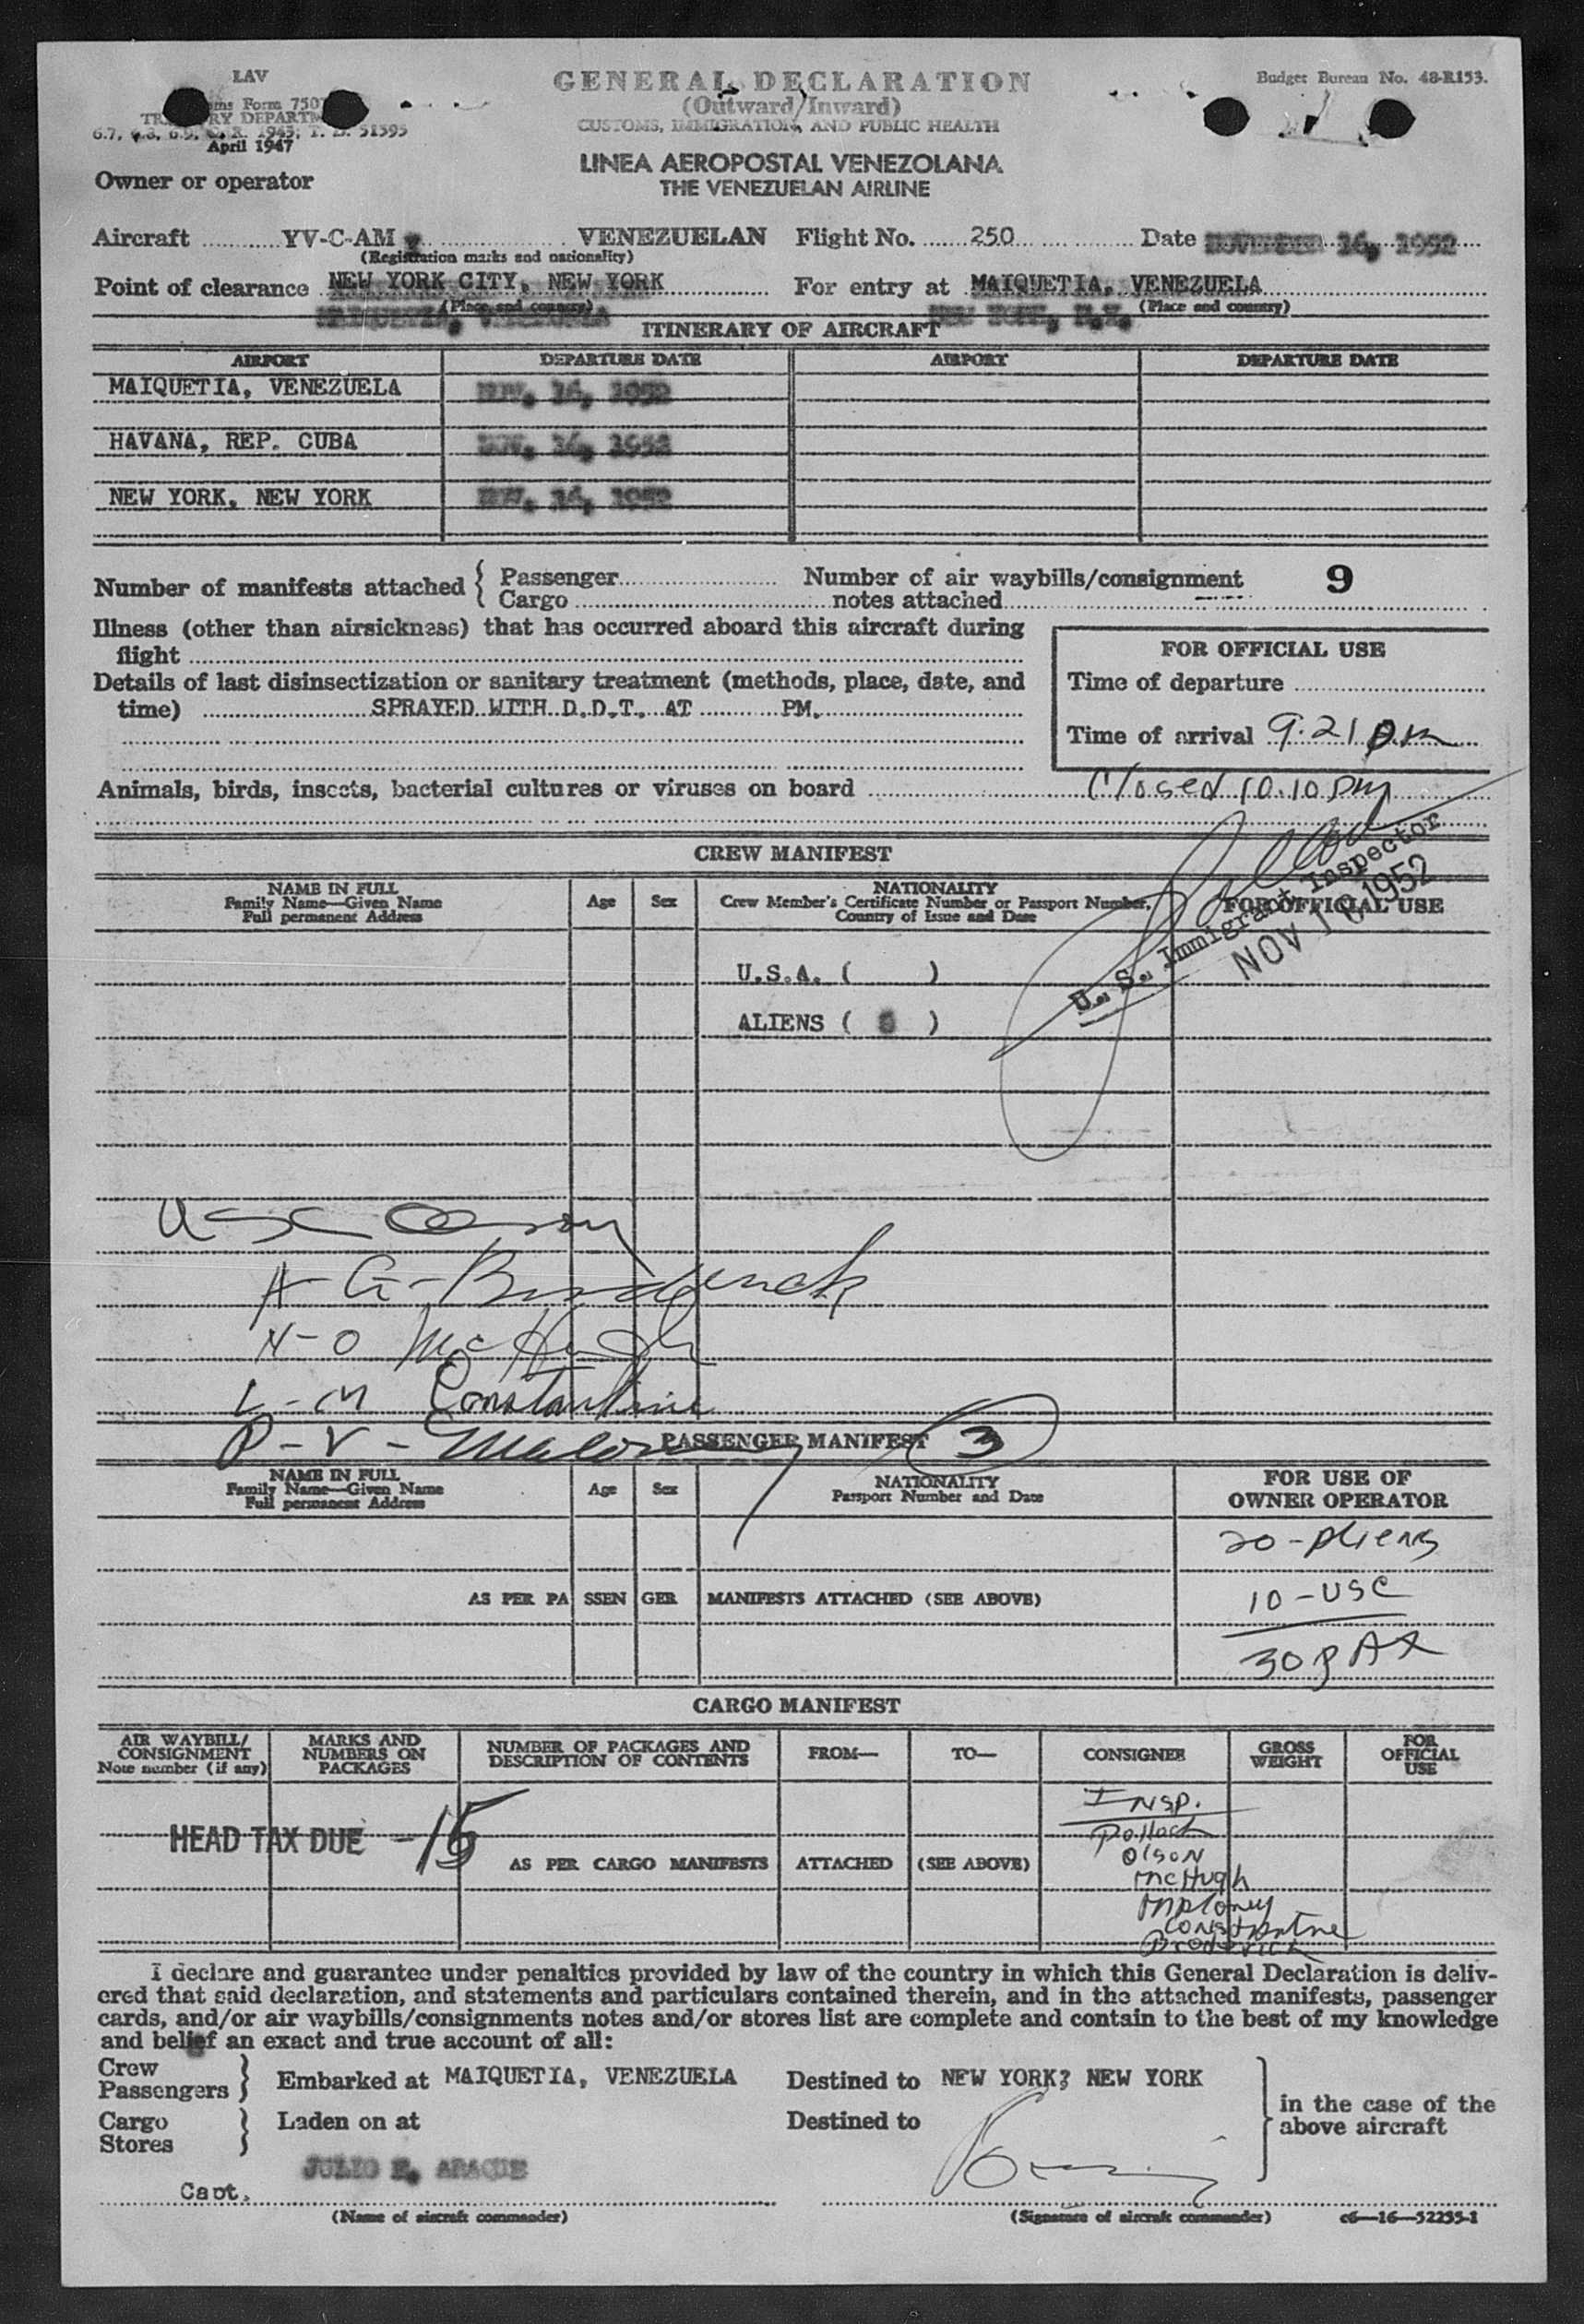 LAV
GENERAL DECLARATION
Budget Bureau No. 48-R153.
Form 7507
(Outward/Inward)
CUSTOMS, IMMIGRATION, AND PUBLIC HEALTH
6.7, 6.8, 6.9, C. R. 1943; T. D. 51595
April 1947
LINEA AEROPOSTAL VENEZOLANA
THE VENEZUELAN AIRLINE
Owner or operator
Aircraft YV-C-AM VENEZUELAN Flight No. 250 Date NOVEMBER 16, 1952
(Registration marks and nationality)
Point of clearance NEW YORK CITY, NEW YORK For entry at MAIQUETIA, VENEZUELA
(Place and country) (Place and country)
MAIQUETIA, VENEZUELA NEW YORK, N.Y.
ITINERARY OF AIRCRAFT
AIRPORT DEPARTURE DATE AIRPORT DEPARTURE DATE
MAIQUETIA, VENEZUELA NOV. 16, 1952
HAVANA, REP. CUBA NOV. 16, 1952
NEW YORK, NEW YORK NOV. 16, 1952
Number of manifests attached { Passenger Number of air waybills/consignment 9
Cargo notes attached
Illness (other than airsickness) that has occurred aboard this aircraft during
flight
FOR OFFICIAL USE
Details of last disinsectization or sanitary treatment (methods, place, date, and
time) SPRAYED WITH D.D.T. AT PM.
Time of departure
Time of arrival 9.21 pm
Animals, birds, insects, bacterial cultures or viruses on board Closed 10.10 pm
CREW MANIFEST
NAME IN FULL
Family Name—Given Name
Full permanent Address
Age Sex
NATIONALITY
Crew Member's Certificate Number or Passport Number,
Country of Issue and Date
FOR OFFICIAL USE
U. S. Immigrant Inspector
NOV 16 1952
U.S.A. ( )
ALIENS ( )
USC Olson
A - G - Broderick
N - O McHugh
L - M Constantine
P - V - Maloney
PASSENGER MANIFEST 3
NAME IN FULL
Family Name—Given Name
Full permanent Address
Age Sex
NATIONALITY
Passport Number and Date
FOR USE OF
OWNER OPERATOR
20 - Aliens
AS PER PASSENGER MANIFESTS ATTACHED (SEE ABOVE)
10 - USC
30 PAX
CARGO MANIFEST
AIR WAYBILL/
CONSIGNMENT
Note number (if any)
MARKS AND
NUMBERS ON
PACKAGES
NUMBER OF PACKAGES AND
DESCRIPTION OF CONTENTS
FROM—
TO—
CONSIGNEE
GROSS
WEIGHT
FOR
OFFICIAL
USE
HEAD TAX DUE - 15
AS PER CARGO MANIFESTS ATTACHED (SEE ABOVE)
INSP.
Pollack
Olson
McHugh
Maloney
Constantine
Broderick
I declare and guarantee under penalties provided by law of the country in which this General Declaration is deliv-
ered that said declaration, and statements and particulars contained therein, and in the attached manifests, passenger
cards, and/or air waybills/consignments notes and/or stores list are complete and contain to the best of my knowledge
and belief an exact and true account of all:
Crew
Passengers } Embarked at MAIQUETIA, VENEZUELA Destined to NEW YORK? NEW YORK
Cargo
Stores } Laden on at Destined to
in the case of the
above aircraft
Capt. JULIO E. ARAQUE
(Name of aircraft commander) (Signature of aircraft commander) c6—16—52235-1